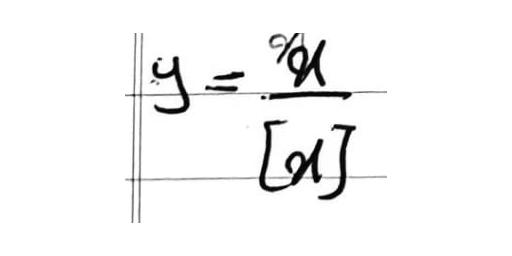 y = x / [x]